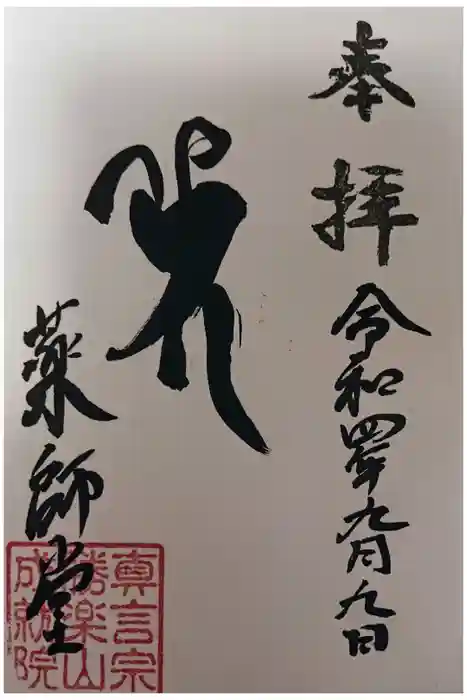 奉拝
令和四年九月九日
薬師堂
真言宗
勝楽山
成就院